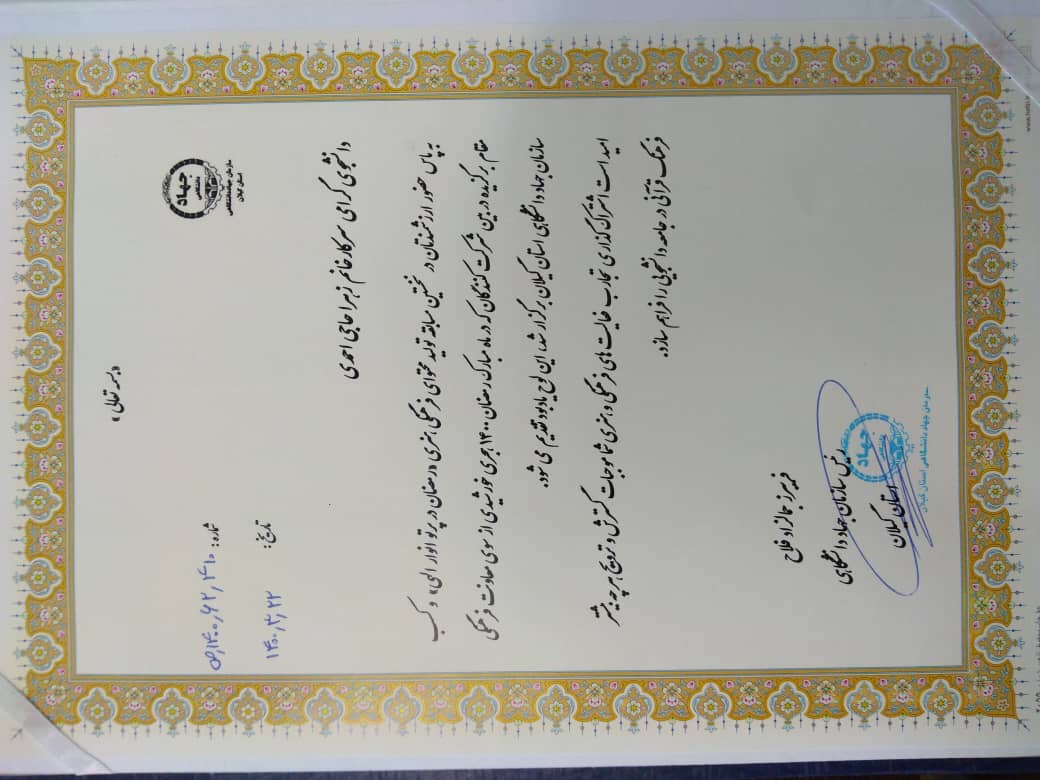 «بسمه تعالی»
جهاد
دانشگاهی
سازمان جهاد دانشگاهی
استان گیلان
شماره: ۴۱۰, ۶۲, ۱۴۰۰, ص
تاریخ: ۱۴۰۰, ۳, ۲۲
دانشجوی گرامی سرکار خانم زهرا حاجی احمدی
به پاس حضور ارزشمندتان در نخستین مسابقه تولید محتوای فرهنگی، هنری «رمضان در پرتو انوار الهی» و کسب
مقام برگزیده در بین شرکت کنندگان که در ماه مبارک رمضان ۱۴۰۰ هجری خورشیدی از سوی معاونت فرهنگی
سازمان جهاد دانشگاهی استان گیلان برگزار شد، این لوح یادبود تقدیم می شود.
امید است اشتراک گذاری تجارب فعالیت های فرهنگی و هنری شما موجبات گسترش و ترویج هرچه بیشتر
فرهنگ قرآنی در جامعه دانشجویی را فراهم سازد.
فریبرز جمالزاد فلاح
رئیس سازمان جهاد دانشگاهی
استان گیلان
جهاد
دانشگاهی
سازمان جهاد دانشگاهی استان گیلان